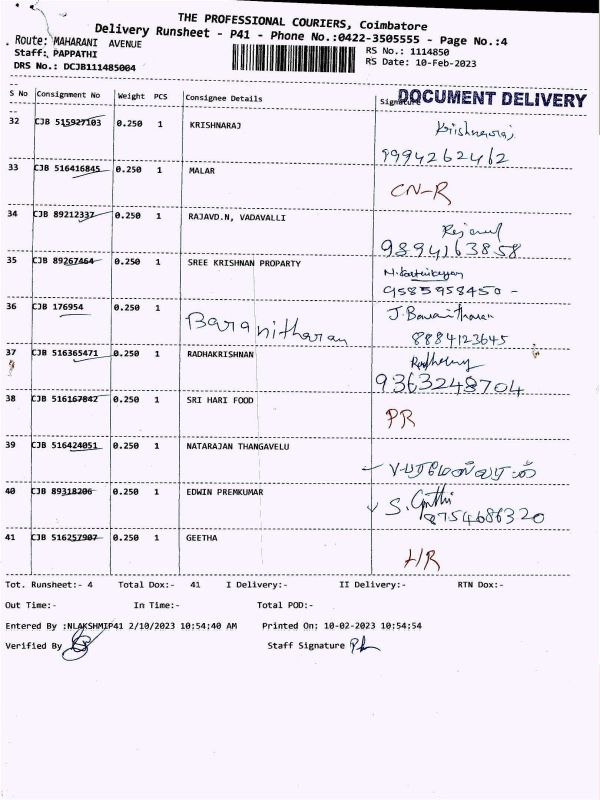 THE PROFESSIONAL COURIERS, Coimbatore
Delivery Runsheet - P41 - Phone No.:0422-3505555 - Page No.:4
Route: MAHARANI AVENUE
RS No.: 1114850
Staff: PAPPATHI
RS Date: 10-Feb-2023
DRS No.: DCJB111485004
S No Consignment No Weight PCS Consignee Details Signature DOCUMENT DELIVERY
32 CJB 515927103 0.250 1 KRISHNARAJ Krishnaraj
9994262462
33 CJB 516416845 0.250 1 MALAR
CN-R
34 CJB 89212337 0.250 1 RAJAVD.N, VADAVALLI
9894163858
35 CJB 89267464 0.250 1 SREE KRISHNAN PROPARTY N. Karthikeyan
9585958450 -
36 CJB 176954 0.250 1 J. Baranitharan
Baranitharan 8884123645
37 CJB 516365471 0.250 1 RADHAKRISHNAN
9363248704
38 CJB 516167842 0.250 1 SRI HARI FOOD
PR
39 CJB 516424051 0.250 1 NATARAJAN THANGAVELU
40 CJB 89318206 0.250 1 EDWIN PREMKUMAR
8754686320
41 CJB 516257907 0.250 1 GEETHA
HR
Tot. Runsheet:- 4 Total Dox:- 41 I Delivery:- II Delivery:- RTN Dox:-
Out Time:- In Time:- Total POD:-
Entered By :NLAKSHMIP41 2/10/2023 10:54:40 AM Printed On: 10-02-2023 10:54:54
Verified By Staff Signature